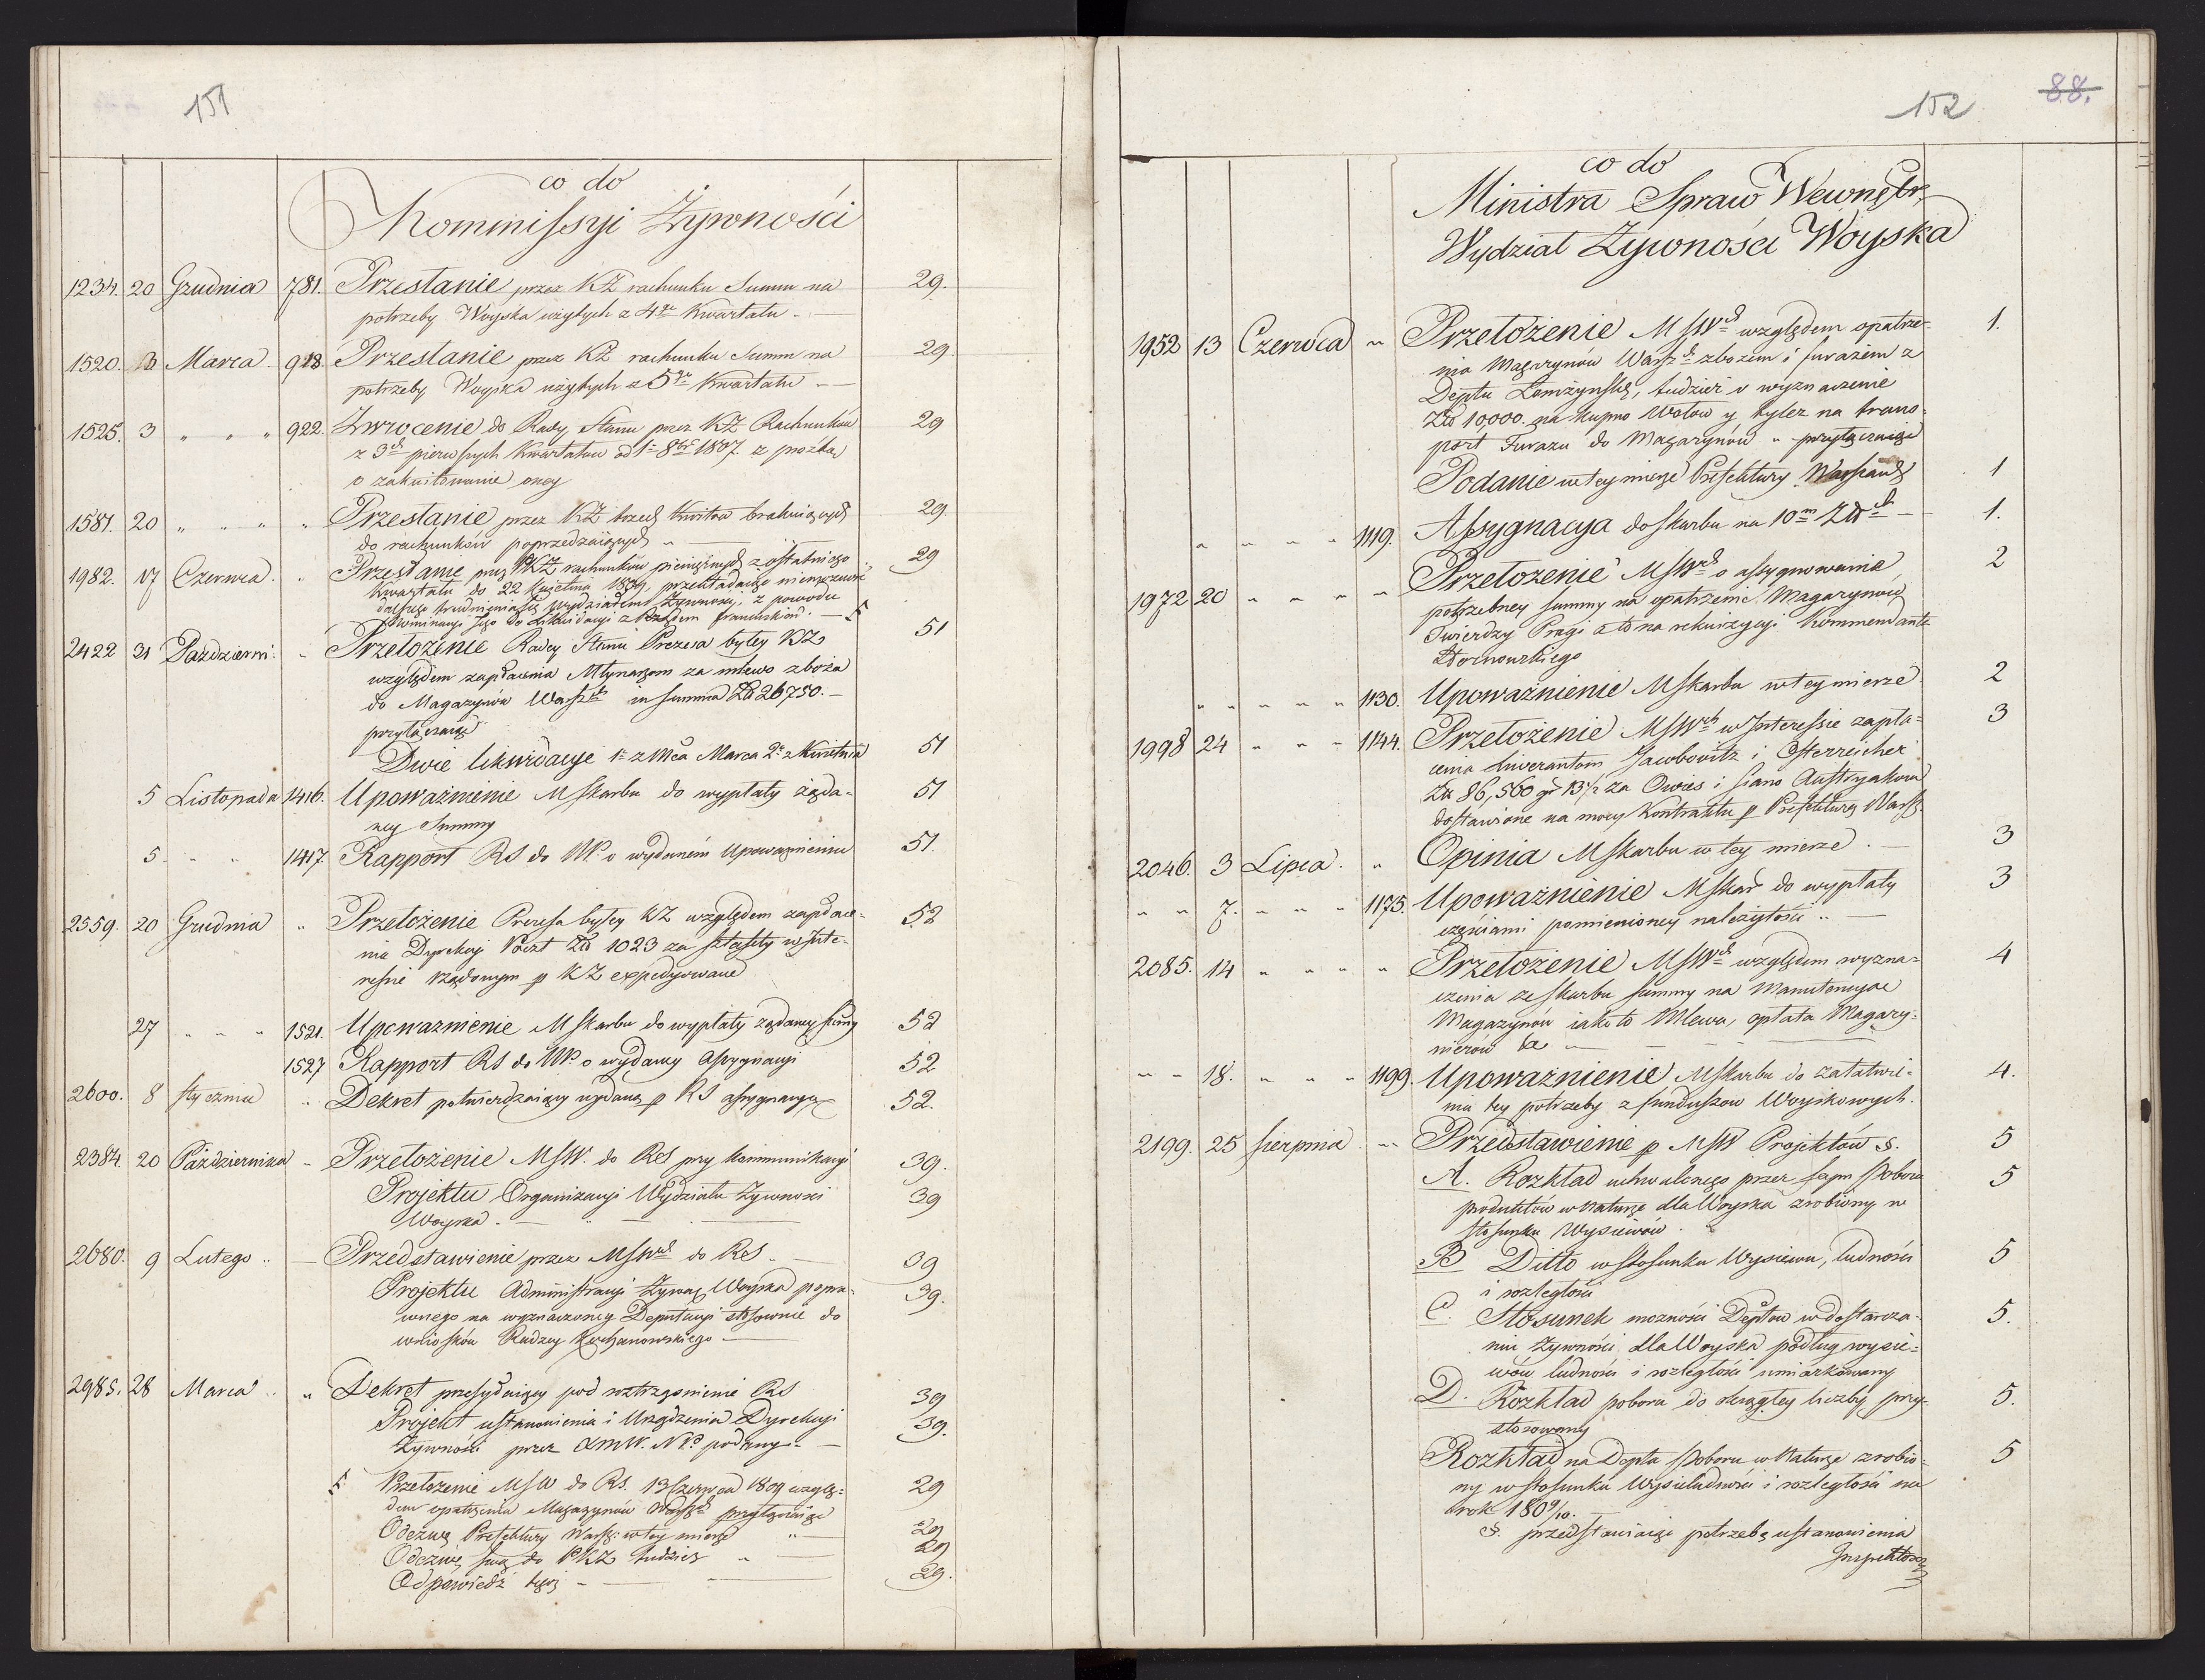 151
co do
Kommissyi Żywności
1234. 20 Grudnia 781. Przesłanie przez KŻ rachunku Summ na 29.
potrzeby Woyska użytych z 4go Kwartału
1520. Marca 918. Przesłanie przez KŻ rachunku Summ na 29
potrzeby Woyska użytych z 5go Kwartału
1525. 3 " " " 922. Zwrocenie do Rady Stanu przez KŻ Rachunków 29
z 3ch pierwszych Kwartałów od 1. 8br 1807. z proźbą
o zakwitowanie oney
1581. 20 " " " " Przesłanie przez KŻ trzech Kwitów brakuiących 29.
do rachunków poprzedzaiących "
1982. 17 Czerwca " Przesłanie przez PKŻ rachunków pieniężnych z ostatniego 29
Kwartału do 22 Kwietnia 1809, przekładaiąc niemożność
dalszego trudnienia się wydziałem Żywności, z powodu
nominacyi Jego do Likwidacyi z Rządem francuskim
2422 31 Październi: " Przełożenie Radcy Stanu Prezesa byłey KŻ 51
względem zapłacenia Młynarzom za mlewo zboża
do Magazynów Warsz. in summa Zł 26,750. –
przyłączaiąc
Dwie likwidacye 1. z Mca Marca 2. z Kwietnia 51
5 Listopada 1416. Upoważnienie MSkarbu do wypłaty żąda= 51
ney Summy
5 " " 1417 Rapport RS do NK o wydanem Upoważnieniu 51
2559. 20 Grudnia " Przełożenie Prezesa byłey KŻ względem zapłace= 52
nia Dyrekcyi Poczt Zł 1023 za sztafety w Inte=
ressie rządowym p KŻ expedyowane
27 " " " 1521. Upoważnienie MSkarbu do wypłaty żądaney summy 52
1527 Rapport RS do NK o wydaney Assygnacyi 52
2600. 8 Stycznia " Dekret potwierdzaiący wydaną p RS assygnacyą 52.
2384. 20 Października – Przełożenie MSW. do RS przy kommunikacyi 39.
Projektu Organizacyi Wydziału Żywności 39
Woyska. –
2680. 9 Lutego " – Przedstawienie przez MSW do RS. 39
Projektu Administracyi Żywn. Woyska popra= 39.
wnego na wyznaczoney Deputacyi stosownie do
wniosków Radzcy Kochanowskiego
2985. 28 Marca " Dekret przesyłaiący pod roztrząśnienie RS 39
Projekt ustanowienia i Urządzenia Dyrekcyi 39.
Żywności przez podany
Przełożenie MSW do RS. 13 Czerwca 1809 wzglę= 29
dem opatrzenia Magazynów Warsz. przyłączaiąc
Odezwę Prefektury Warsz: w tey mierze " 29
Odezwę swą do PKŻ tudzież " 29
Odpowiedź tegoż – 29.
152
88.
co do
Ministra Spraw Wewnętr.
Wydział Żywności Woyska
1952 13 Czerwca " Przełożenie MSW względem opatrze= 1.
nia Magazynów Warsz. zbożem i furażem z
Deptu Łomżyńskg, tudzież o wyznaczenie
Zł 10,000. na kupno Wołów y tyleż na trans=
port Furażu do Magazynów " przyłączaiąc
Podanie w tey mierze Prefektury Warszaws 1
" " " " 1119. Assygnacya do Skarbu na 10m Zł – 1.
1972 20 " " " " Przełożenie MSW o assygnowanie 2
potrzebney summy na opatrzenie Magazynów
Twierdzy Pragi a to na rekwizycyi Kommendanta
Hornowskiego
" " " " " 1130. Upoważnienie MSkarbu w tey mierze 2
1998 24 " " " 1144. Przełożenie MSW w Interessie zapła= 3
cenia Liwerantom Jacobowitz i Osterreicher
Zł 86,560 gr 13½ za Owies i Siano Austryakom
dostawione na mocy Kontraktu p Prefekturę Warsz.
2046. 3 Lipca. " Opinia MSkarbu w tey mierze. – 3
" " 7. " " " 1175. Upoważnienie MSkar do wypłaty 3
częściami pomienioney należytości " –
2085. 14 " " " " Przełożenie MSW względem wyzna= 4
czenia ze Skarbu summy na Manutencyą
Magazynów iako to Mlewa, opłata Magazy=
nierów &c –
" " 18. " " " 1199. Upoważnienie MSkarbu do załatwie= 4.
nia tey potrzeby z funduszów Woyskowych.
2199. 25 Sierpnia " Przedstawienie p MSW Projektów S. 5
A. Rozkład uchwalonego przez Seym Poboru 5
produktów w Naturze dla Woyska zrobiony w
stosunku Wysiewów
B Ditto w stosunku Wysiewu, ludności 5
i rozległości
C. Stosunek możności Deptów w dostarcza= 5.
niu Żywności dla Woyska podług wysie=
wów ludności i rozległości umiarkowany
D. Rozkład poboru do okrągłey liczby przy= 5.
stosowany
Rozkład na Depta Poboru w Naturze zrobio= 5
ny w stosunku Wysie ludności i rozległości na
rok 1809/10.
S. przedstawiaiąc potrzebę ustanowienia
Inspektora